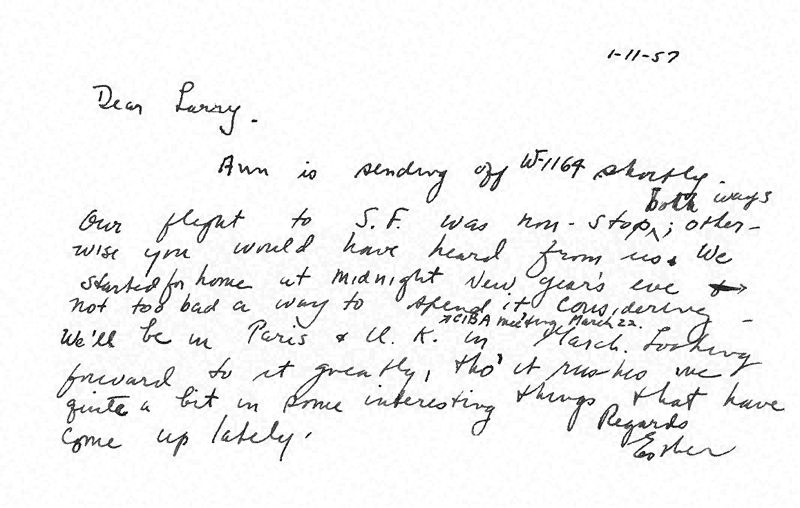 1-11-57
Dear Larry.
Ann is sending off W-1164 shortly.
both ways
Our flight to S.F. was non-stop; other-
wise you would have heard from us. We
started for home at midnight New Year's eve
not too bad a way to spend it considering.
CIBA meeting March 22.
We'll be in Paris & U.K. in March. Looking
forward to it greatly, tho' it rushes me
quite a bit in some interesting things that have
come up lately.
Regards
Esther